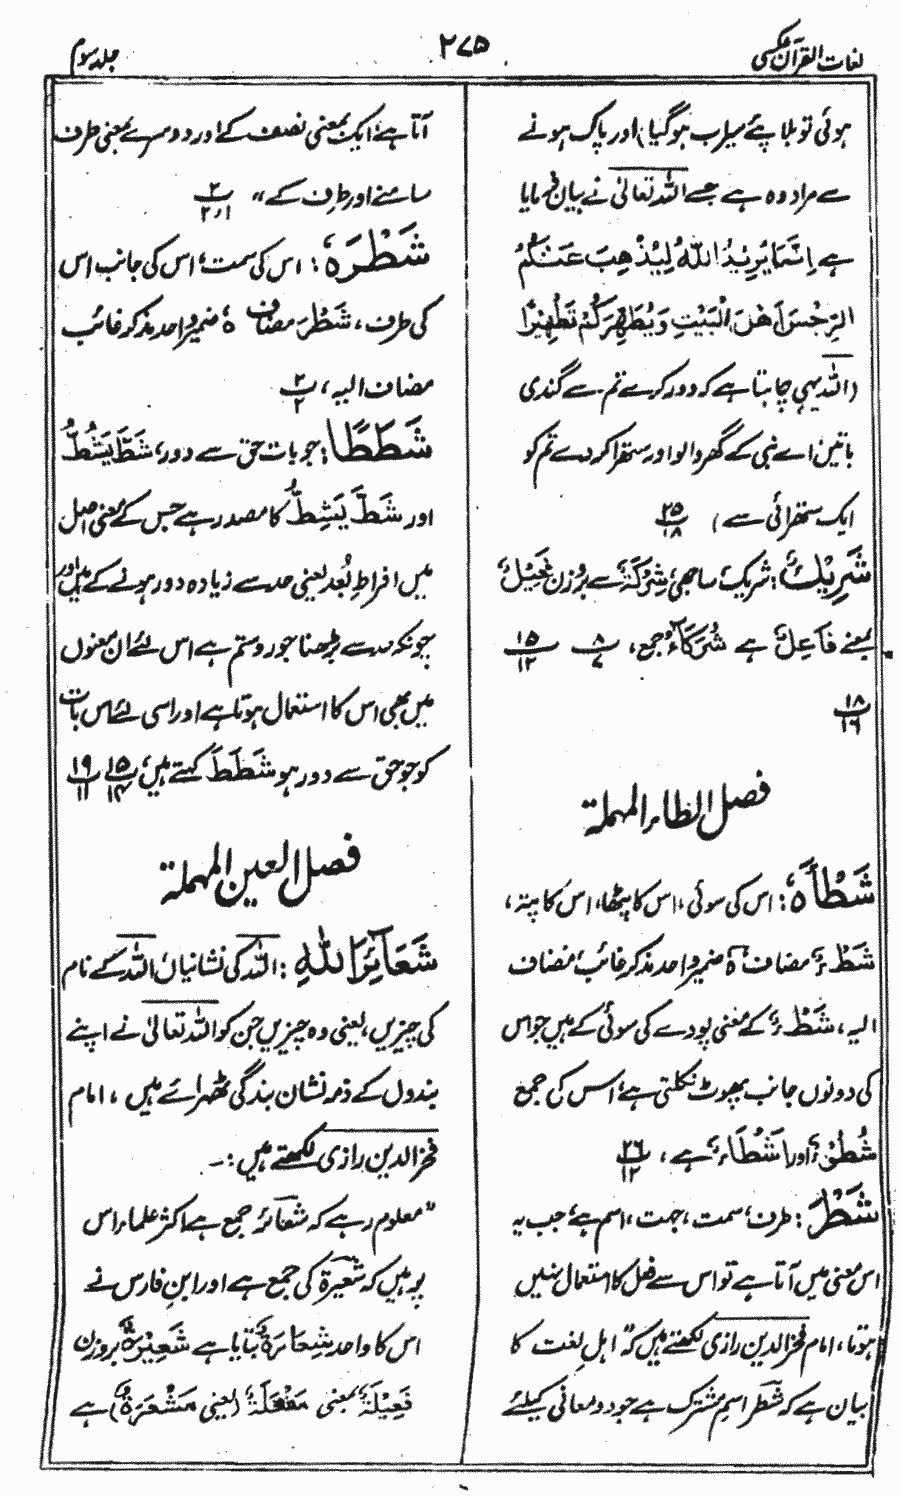 لغات القرآن عکسی
۲۷۵
جلد سوم
ہوئی تو بلا پئے سیراب ہوگیا) اور پاک ہونے
سے مراد وہ ہے جسے اللہ تعالیٰ نے بیان فرمایا
ہے اِنَّمَا یُرِیْدُ اللّٰهُ لِیُذْهِبَ عَنْكُمُ
الرِّجْسَ اَهْلَ الْبَیْتِ وَیُطَهِّرَكُمْ تَطْهِیْرًا
(اللہ یہی چاہتا ہے کہ دور کرے تم سے گندی
باتیں اے نبی کے گھر والو اور ستھرا کردے تم کو
ایک ستھرائی سے) ۲۵/۱۸
شَرِیْكٌ: شریک، ساجھی، شِرْكَةٌ سے بروزن
بمعنے فَاعِلٌ ہے شُرَكَاءُ جمع، ۸/۷ ۱۵/۱۲
۱۸/۱۶
فصل الطاء المہملۃ
شَطْأَهٗ: اس کی سوئی، اس کا پٹھا، اس کا پتہ،
شَطْءَ مضاف ہٗ ضمیر واحد مذکر غائب مضاف
الیہ، شَطْءٌ کے معنی پودے کی سوئی کے ہیں جو اس
کی دونوں جانب پھوٹ نکلتی ہے، اس کی جمع
شُطُوْءٌ اور اَشْطَاءٌ ہے، ۲۶/۱۲
شَطْرَ: طرف، سمت، جہت، اسم ہے، جب یہ
اس معنی میں آتا ہے تو اس سے فعل کا استعمال نہیں
ہوتا، امام فخر الدین رازی لکھتے ہیں کہ "اہل لغت کا
بیان ہے کہ شطر اسم مشترک ہے جو دو معانی کیلئے
آتا ہے، ایک بمعنی نصف کے اور دوسرے بمعنی طرف
سامنے اور طرف کے" ۲/۲،۱
شَطْرَهٗ: اس کی سمت، اس کی جانب اس
کی طرف، شَطْرَ مضاف ہٗ ضمیر واحد مذکر غائب
مضاف الیہ، ۲/۲
شَطَطًا: جو بات حق سے دور، شَطَّ یَشُطُّ
اور شَطَّ یَشِطُّ کا مصدر ہے جس کے معنی اصل
میں افراطِ بُعد یعنی حد سے زیادہ دور ہونے کے ہیں اور
چونکہ حد سے بڑھنا جور و ستم ہے اس لئے ان معنوں
میں بھی اس کا استعمال ہوتا ہے اور اسی لئے اس بات
کو جو حق سے دور ہو شَطَط کہتے ہیں، ۱۵/۱۴ ۱۹/۱۱
فصل العین المہملۃ
شَعَآئِرَ اللّٰهِ: اللہ کی نشانیاں، اللہ کے نام
کی چیزیں، یعنی وہ چیزیں جن کو اللہ تعالیٰ نے اپنے
بندوں کے ذمہ نشان بندگی ٹھہرائے ہیں، امام
فخر الدین رازی لکھتے ہیں:۔
"معلوم رہے کہ شعائر جمع ہے اکثر علماء اس
پر ہیں کہ شعیرۃ کی جمع ہے اور ابن فارس نے
اس کا واحد شِعَارَةٌ بتایا ہے شَعِیْرَةٌ بروزن
فَعِیْلَةٌ بمعنی مَفْعَلَةٌ (یعنی مَشْعَرَةٌ) ہے